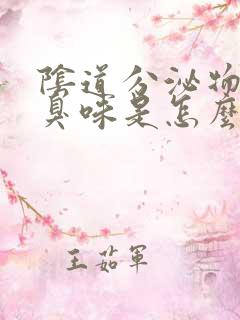 陰道分泌物
臭味是怎麼
王茹軍